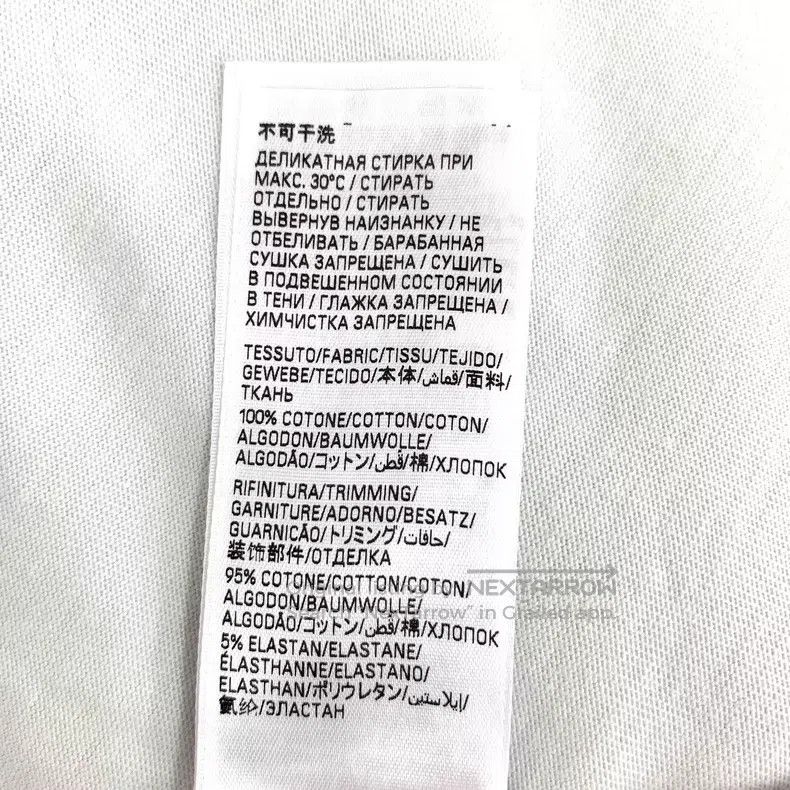 不可干洗
ДЕЛИКАТНАЯ СТИРКА ПРИ
МАКС. 30°C / СТИРАТЬ
ОТДЕЛЬНО / СТИРАТЬ
ВЫВЕРНУВ НАИЗНАНКУ / НЕ
ОТБЕЛИВАТЬ / БАРАБАННАЯ
СУШКА ЗАПРЕЩЕНА / СУШИТЬ
В ПОДВЕШЕННОМ СОСТОЯНИИ
В ТЕНИ / ГЛАЖКА ЗАПРЕЩЕНА /
ХИМЧИСТКА ЗАПРЕЩЕНА
TESSUTO/FABRIC/TISSU/TEJIDO/
GEWEBE/TECIDO/本体/قماش/面料/
ТКАНЬ
100% COTONE/COTTON/COTON/
ALGODON/BAUMWOLLE/
ALGODÃO/コットン/قطن/棉/ХЛОПОК
RIFINITURA/TRIMMING/
GARNITURE/ADORNO/BESATZ/
GUARNICÃO/トリミング/حافات/
装饰部件/ОТДЕЛКА
95% COTONE/COTTON/COTON/
ALGODON/BAUMWOLLE/
ALGODÃO/コットン/قطن/棉/ХЛОПОК
5% ELASTAN/ELASTANE/
ÉLASTHANNE/ELASTANO/
ELASTHAN/ポリウレタン/إيلاستين/
氨纶/ЭЛАСТАН
NEXTARROW
"Nextarrow" in Grailed app.